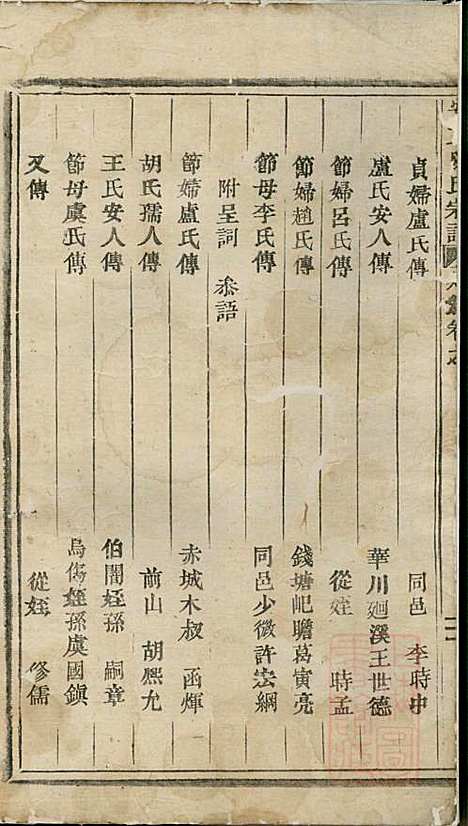 貞婦盧氏傳 同邑 李時中
盧氏安人傳 華川廻溪王世德
節婦呂氏傳 從姪 時孟
節婦趙氏傳 錢塘屺瞻葛寅亮
節母李氏傳 同邑少微許宏綱
附呈詞 叅語
節婦盧氏傳 赤城木叔 函煇
胡氏孺人傳 前山 胡熙允
王氏安人傳 伯闇姪孫 嗣章
節母虞氏傳 烏傷姪孫虞國鎮
又傳 從姪 修儒